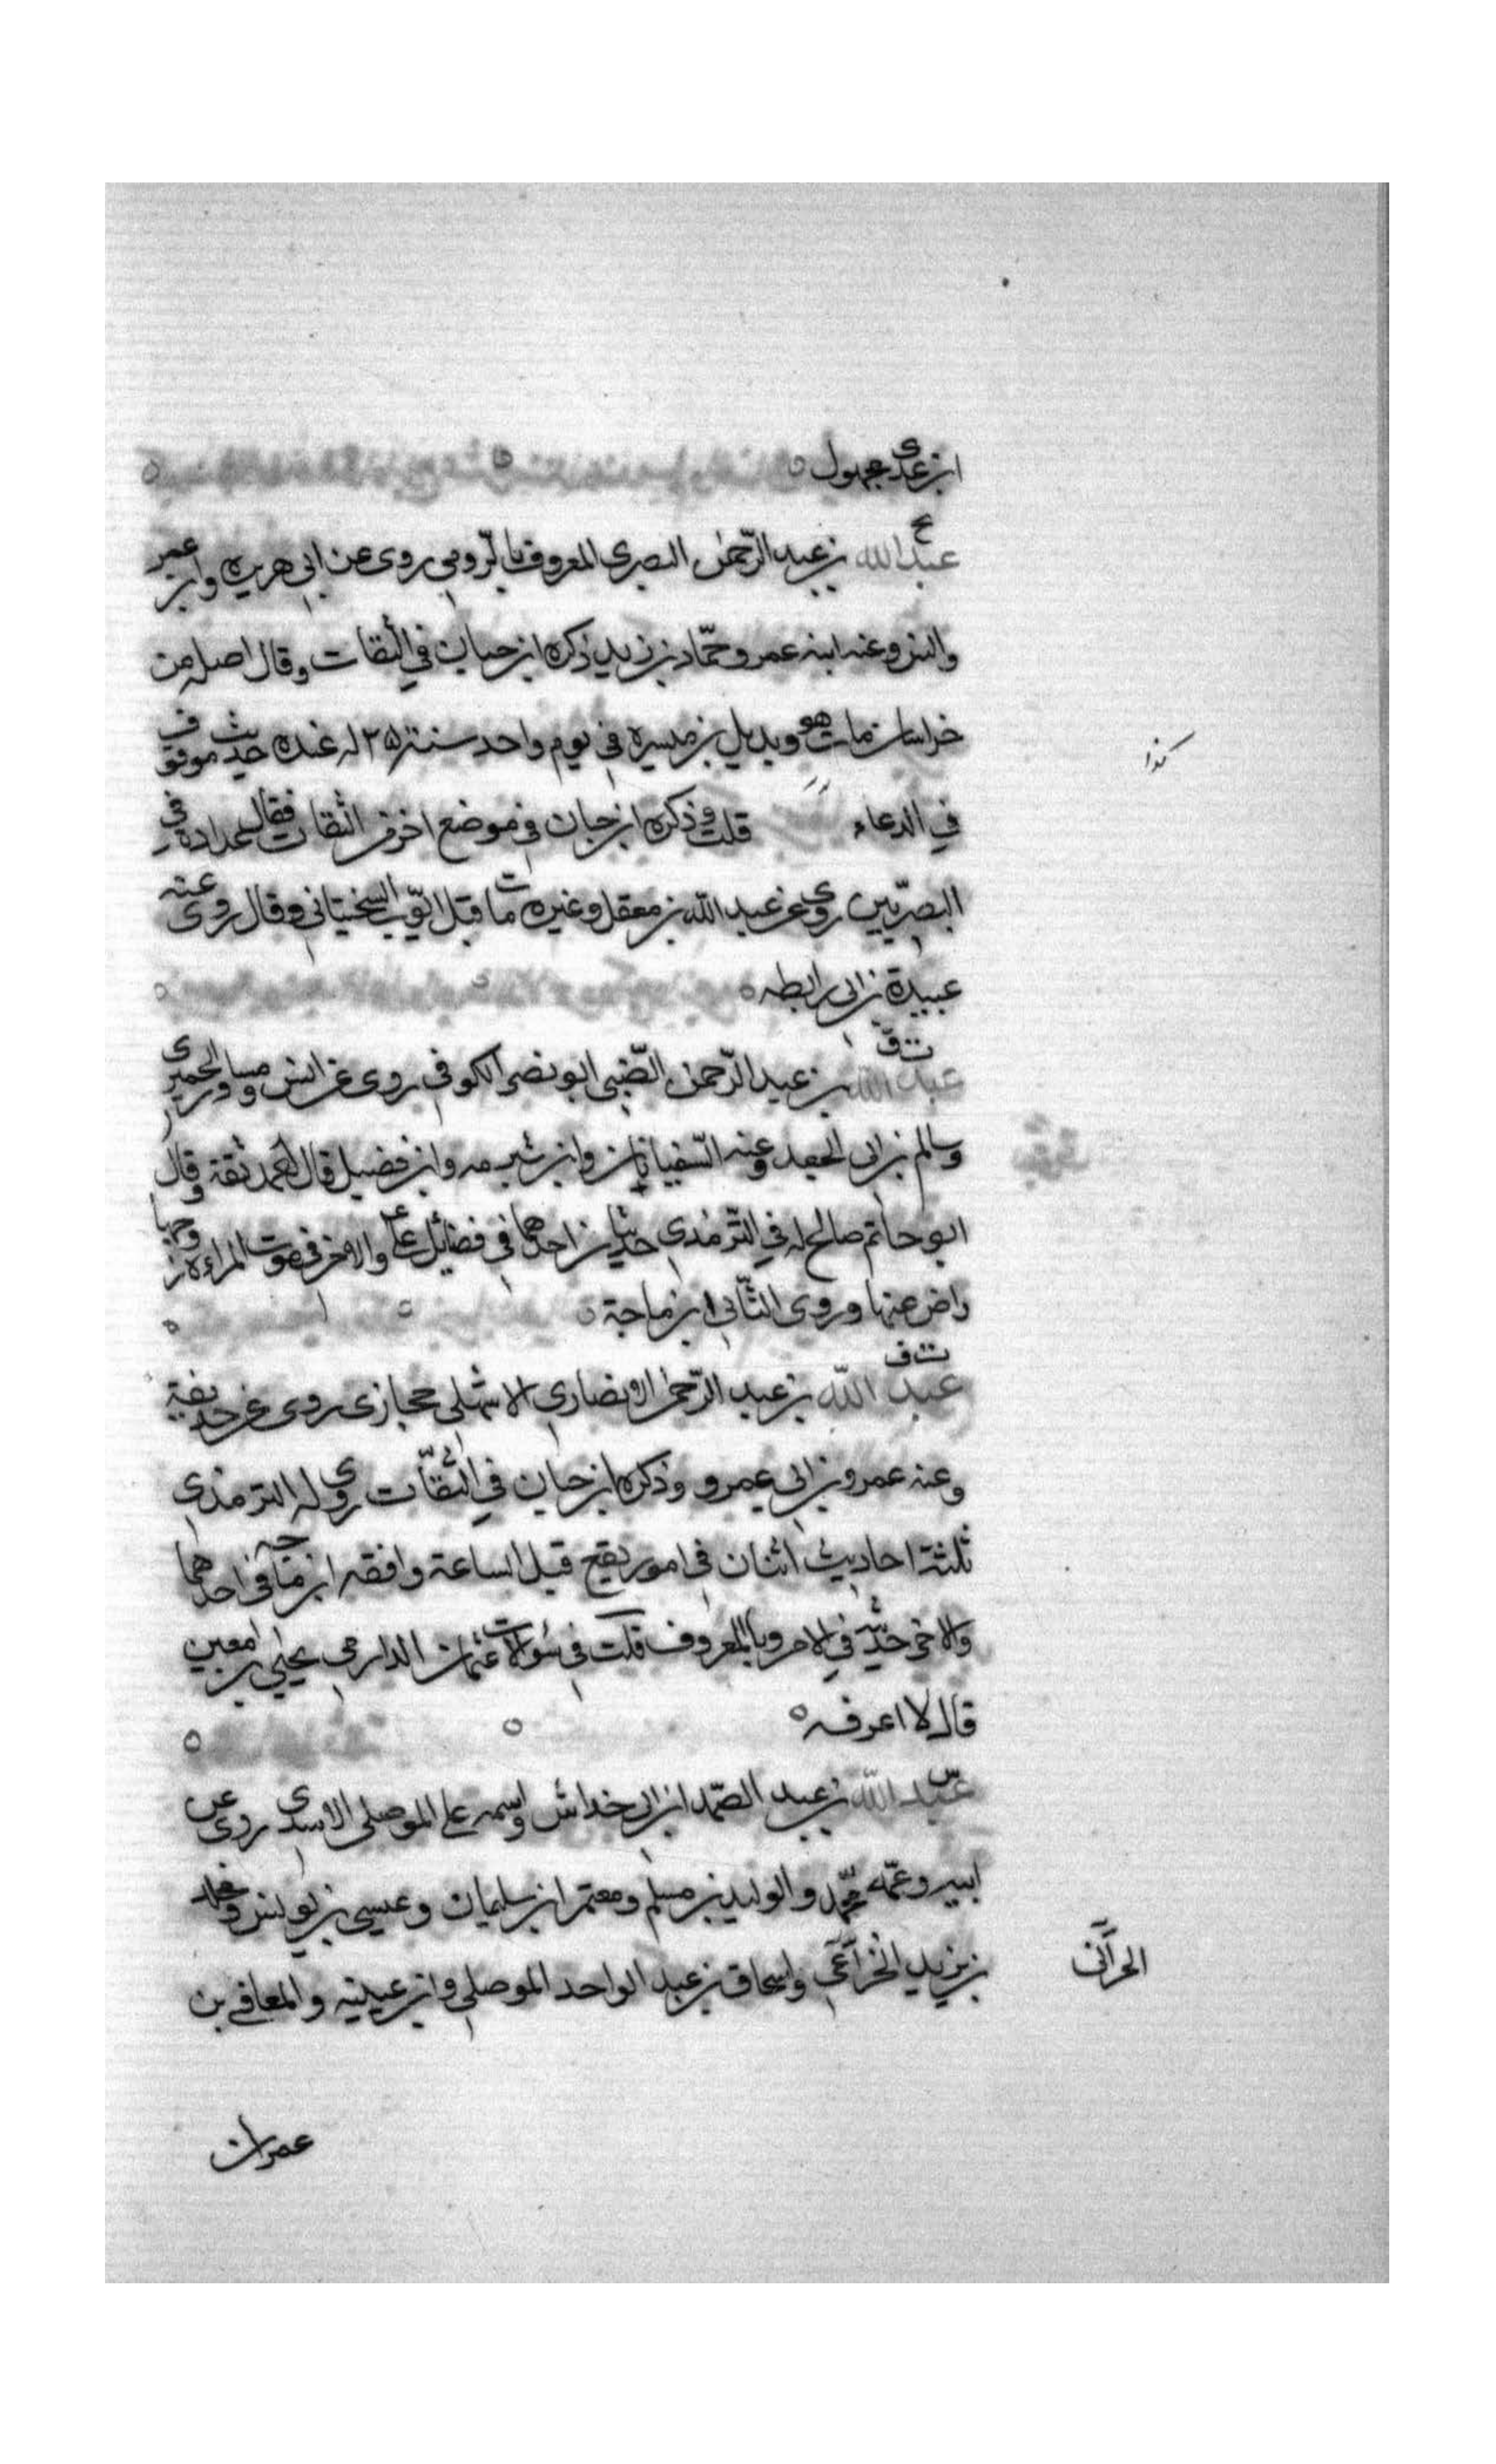 ابن عدى مجهول
عبد الله بن عبد الرّحمن البصرى المعروف بالرّومى روى عن ابى هريره وابن عمر
وانس وعنه ابنه عمر وحمّاد بن زيد ذكره ابن حبان في الثقات وقال اصله من
خراسان مات هو وبديل بن ميسرة في يوم واحد سنة ٢٥ له عنده حديث موقوف
كذا
في الدعاء قلت وذكره ابن حبان في موضع اخر من الثقات فقال عداده في
البصريّين روى عن عبد الله بن معقل وغيره مات قبل ايّوب السختيانى وقال روى عنه
عبيدة بن ابى رابطه
ت ق
عبد الله بن عبد الرّحمن الضّبى ابو نصر الكوفى روى عن انس ومساور الحميرى
وسالم بن ابى الجعد وعنه السّفيانان وابن شبرمه وابن فضيل قال احمد ثقة وقال
ابو حاتم صالح له في التّرمذى حديثان احدهما في فضائل على والاخر في موت المراءة وزوجها
راض عنها وروى الثّانى ابن ماجة
ت ق
عبد الله بن عبد الرّحمن الانصارى الاشهلى حجازى روى عن حذيفة
وعنه عمرو بن ابى عمرو وذكره ابن حبان في الثّقات روى له الترمذى
ثلثة احاديث اثنان في امور يقع قبل الساعة وافقه ابن ماجه في احدهما
والاخر حديثه في الامر وبالمعروف قلت في سؤالات عثمان الدارمى يحيى بن معين
قال لا اعرفه
س
عبد الله بن عبد الصّمد ابن ابى خداش واسمه على الموصلى الاسدى روى عن
ابيه وعمّه محمّد والوليد بن مسلم ومعتمر ابن سليمان وعيسى بن يونس ومخلد
بن يزيد الخزاعى واسحاق بن عبد الواحد الموصلى وابن عيينه والمعافى بن
الحرّانى
عمران